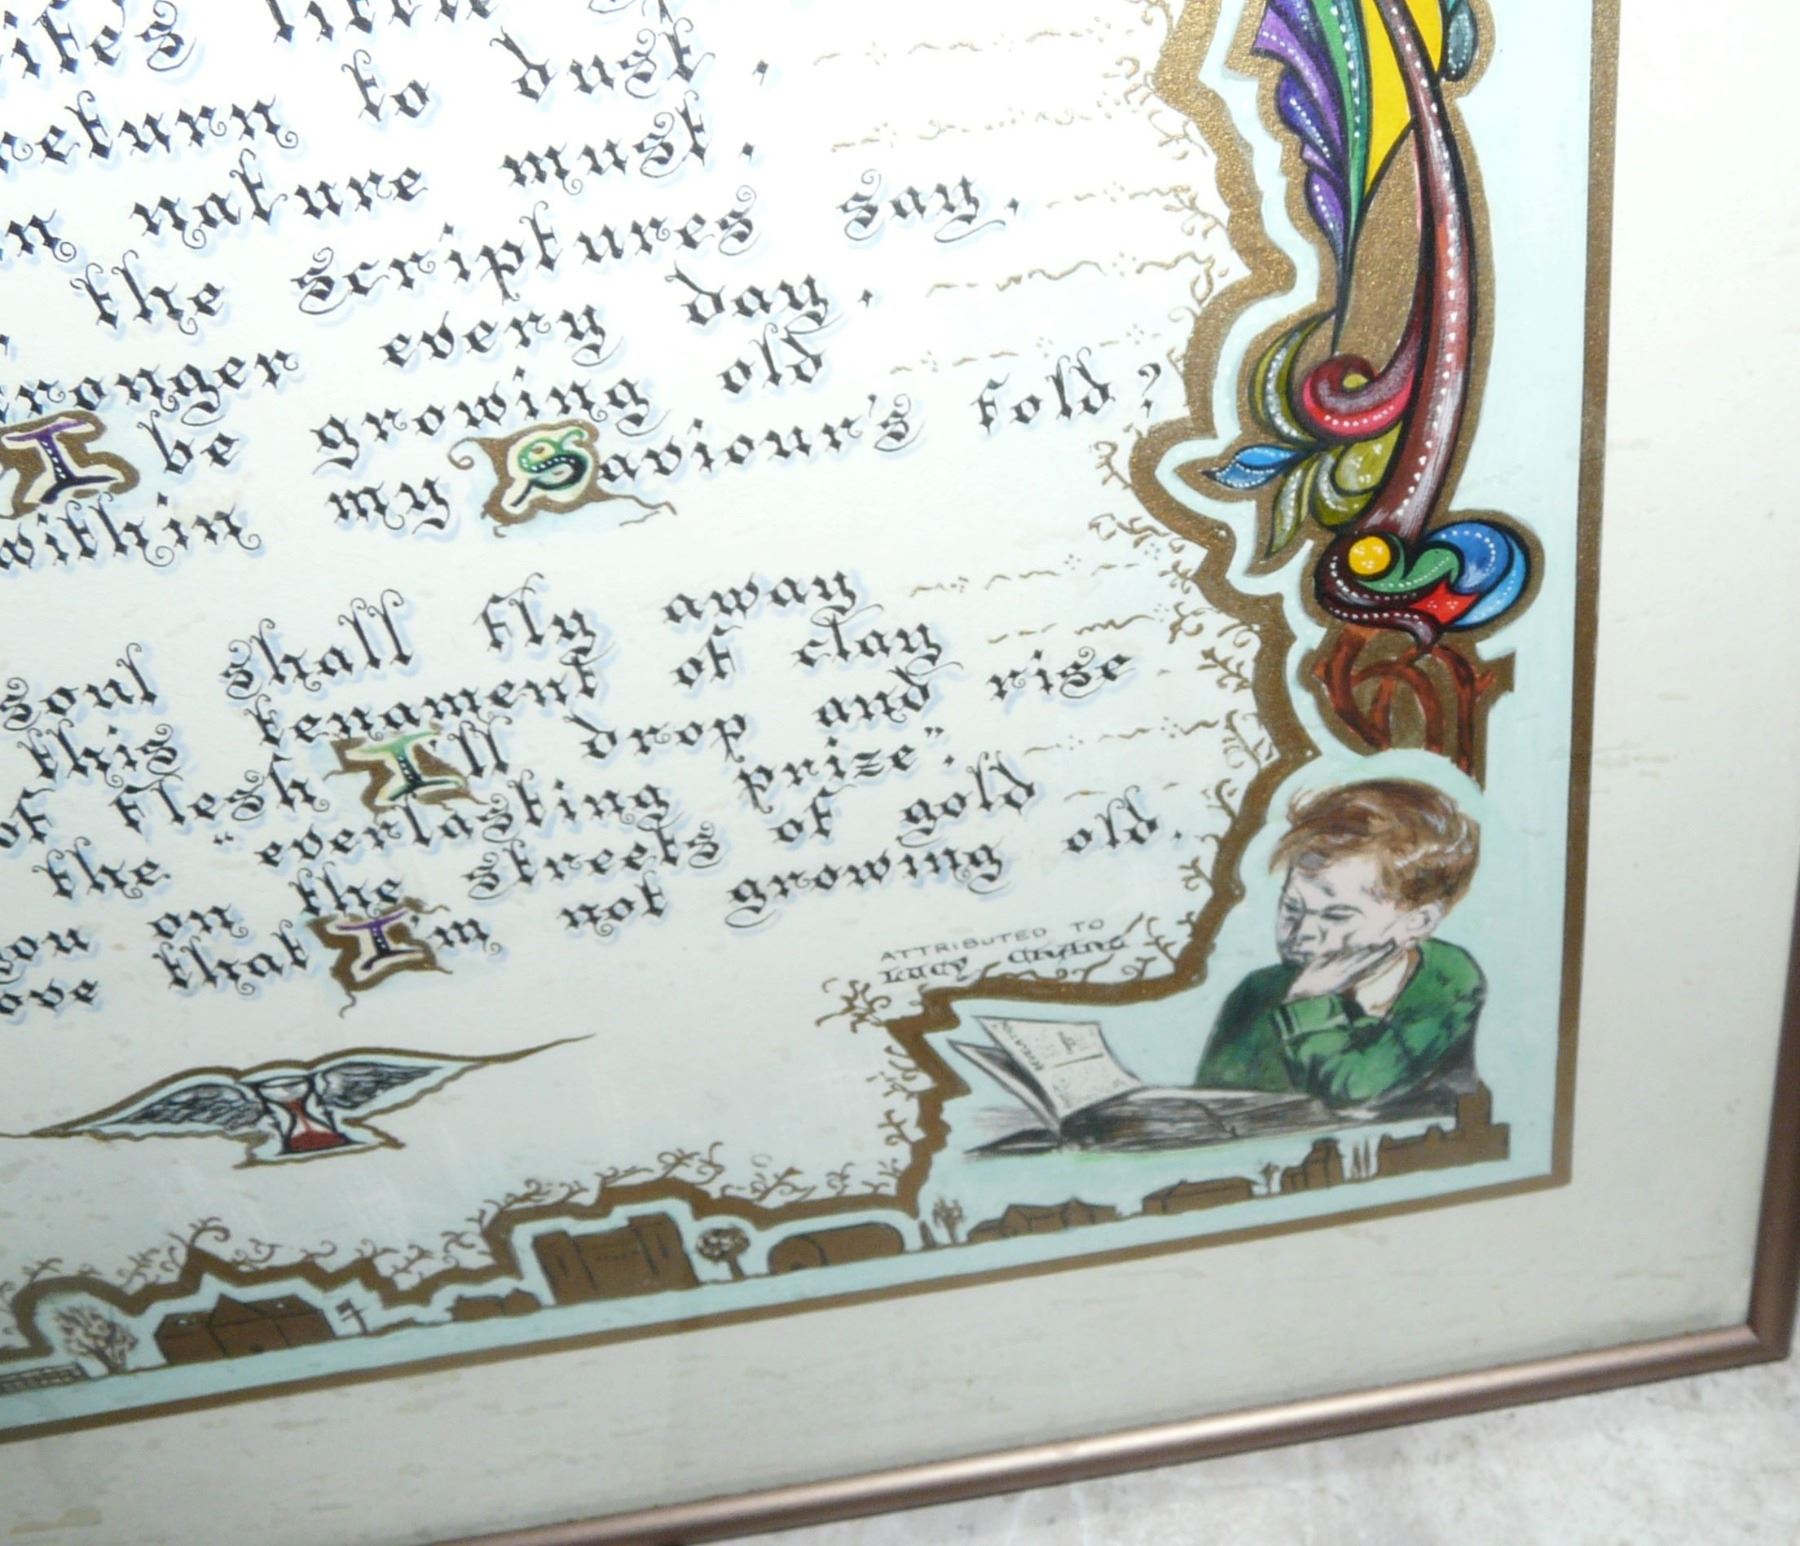 little
return to dust,
nature must.
the scriptures say,
every day.
I be growing old
within my Saviour's fold?
soul shall fly away
this tenament of clay
of flesh I'll drop and rise
the "everlasting prize".
on the streets of gold
that I'm not growing old.
ATTRIBUTED TO
LUCY